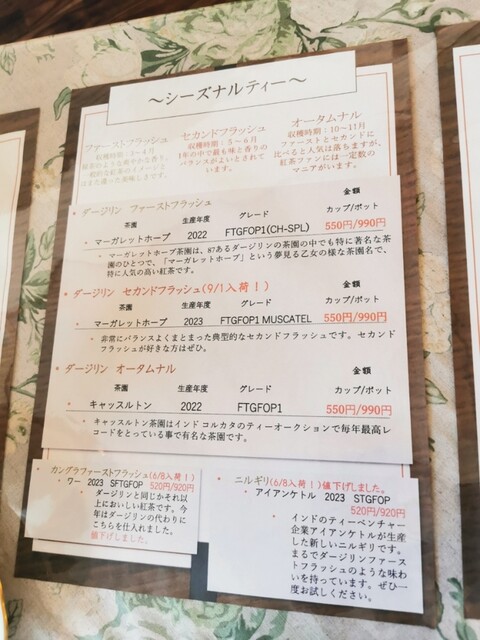 ～シーズナルティー～
ファーストフラッシュ
収穫時期：3～4月
セカンドフラッシュ
収穫時期：5～6月
1年の中で最も味と香りの
バランスがよいとされて
います。
オータムナル
収穫時期：10～11月
ファーストとセカンドに
比べると人気は落ちますが、
紅茶ファンには一定数の
マニアがいます。
ダージリン ファーストフラッシュ
金額
茶園 生産年度 グレード カップ/ポット
マーガレットホープ 2022 FTGFOP1(CH-SPL) 550円/990円
マーガレットホープ茶園は、87あるダージリンの茶園の中でも特に著名な茶
園のひとつで、「マーガレットホープ」という夢見る乙女の様な茶園名で、
特に人気の高い紅茶です。
ダージリン セカンドフラッシュ(9/1入荷！)
金額
茶園 生産年度 グレード カップ/ポット
マーガレットホープ 2023 FTGFOP1 MUSCATEL 550円/990円
非常にバランスよくまとまった典型的なセカンドフラッシュです。セカンド
フラッシュが好きな方はぜひ。
ダージリン オータムナル
金額
茶園 生産年度 グレード カップ/ポット
キャッスルトン 2022 FTGFOP1 550円/990円
キャッスルトン茶園はインド コルカタのティーオークションで毎年最高レ
コードをとっている事で有名な茶園です。
カングラファーストフラッシュ(6/8入荷！)
ワー 2023 SFTGFOP 520円/920円
ダージリンと同じかそれ以
上においしい紅茶です。今
年はダージリンの代わりに
こちらを仕入れました。
値下げしました。
ニルギリ(6/8入荷！)値下げしました。
アイアンケトル 2023 STGFOP
520円/920円
インドのティーベンチャー
企業アイアンケトルが生産
した新しいニルギリです。
まるでダージリンファース
トフラッシュのような味わ
いを持っています。ぜひ一
度お試しください。